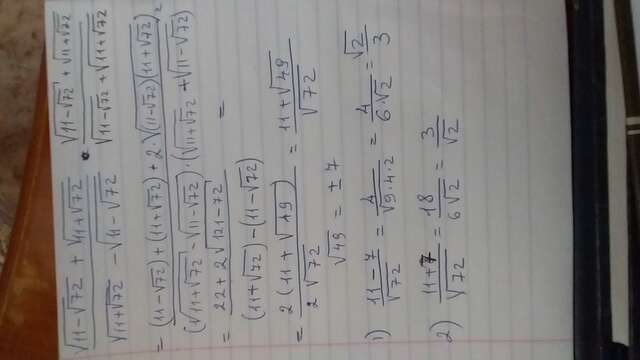 √(11-√72) + √(11+√72) / √(11+√72) - √(11-√72) · √(11-√72) + √(11+√72) / √(11-√72) + √(11+√72)
= (11-√72) + (11+√72) + 2·√((11-√72)(11+√72)) / (√(11+√72) - √(11-√72))·(√(11+√72) + √(11-√72))
= 22 + 2√(121-72) / (11+√72) - (11-√72) =
= 2(11+√49) / 2√72 = 11+√49 / √72
√49 = ± 7
1) 11-7 / √72 = 4 / √(9·4·2) = 4 / 6·√2 = √2 / 3
2) 11+7 / √72 = 18 / 6√2 = 3 / √2